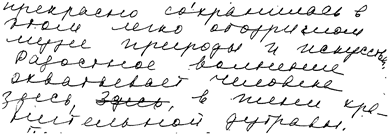 прекрасно сохранилась в
этом легко обозримом
музее природы и искусства.
Радостное волнение
охватывает человека
здесь, здесь, в тени хра
нительной дубравы.